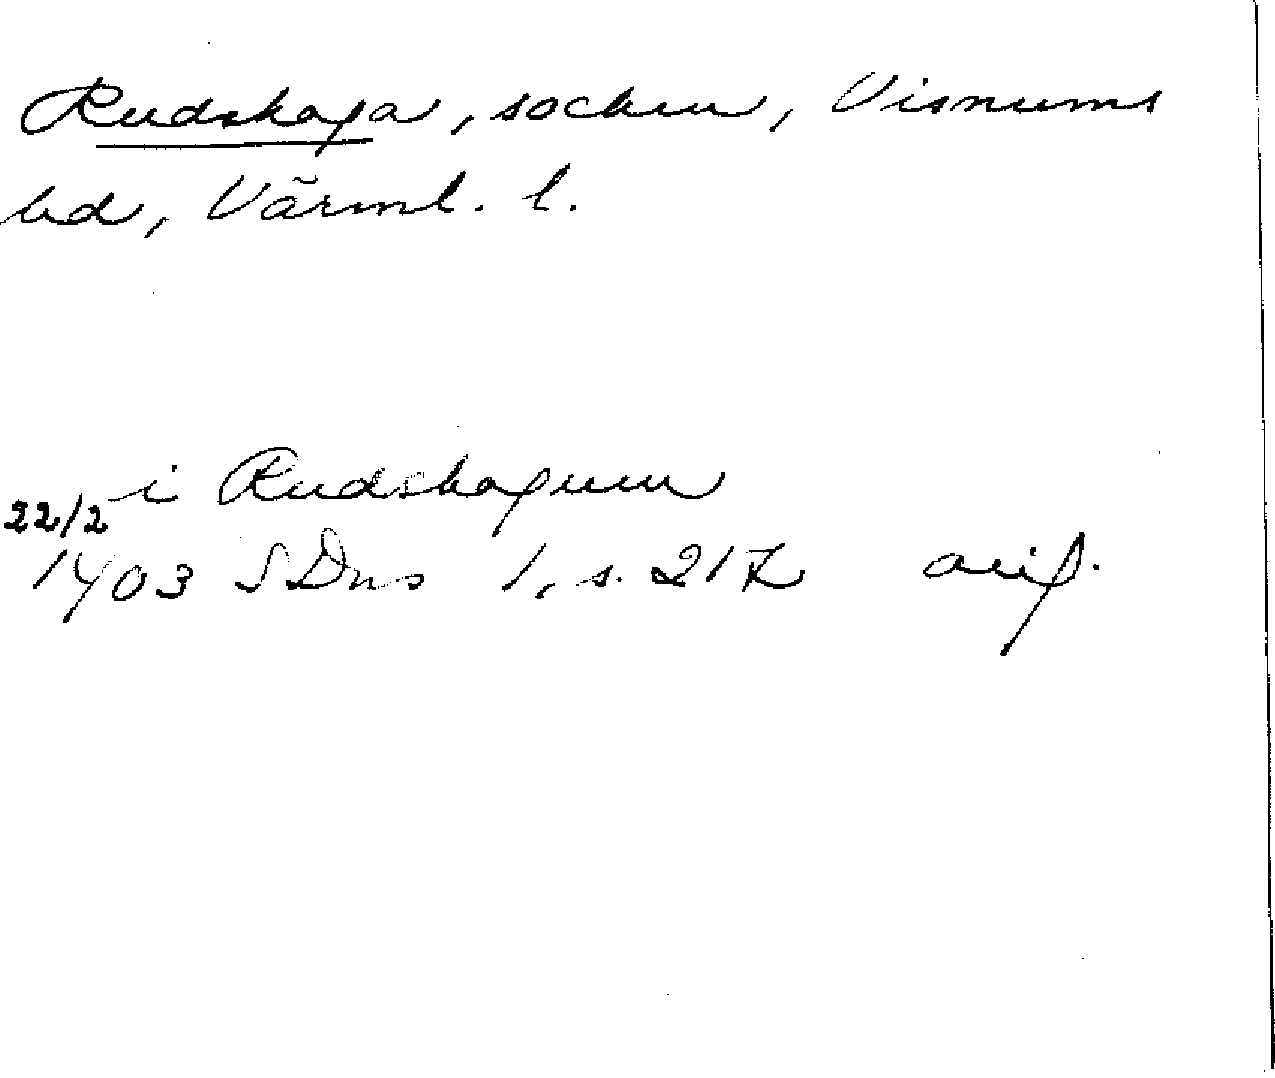 Rudskoga, socken, Visnums
hd, Värml. l.
i Rudskogum
22/2
1403 SDns 1, s. 217 avs.